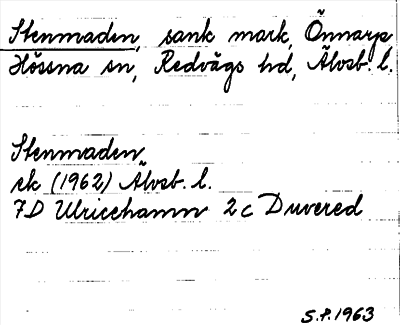 Stenmaden, sank mark, Önnarp
Hössna sn, Redvägs hd, Älvsb. l.
Stenmaden
ek (1962) Älvsb. l.
7D Ulricehamn 2c Duvered
S.P. 1963